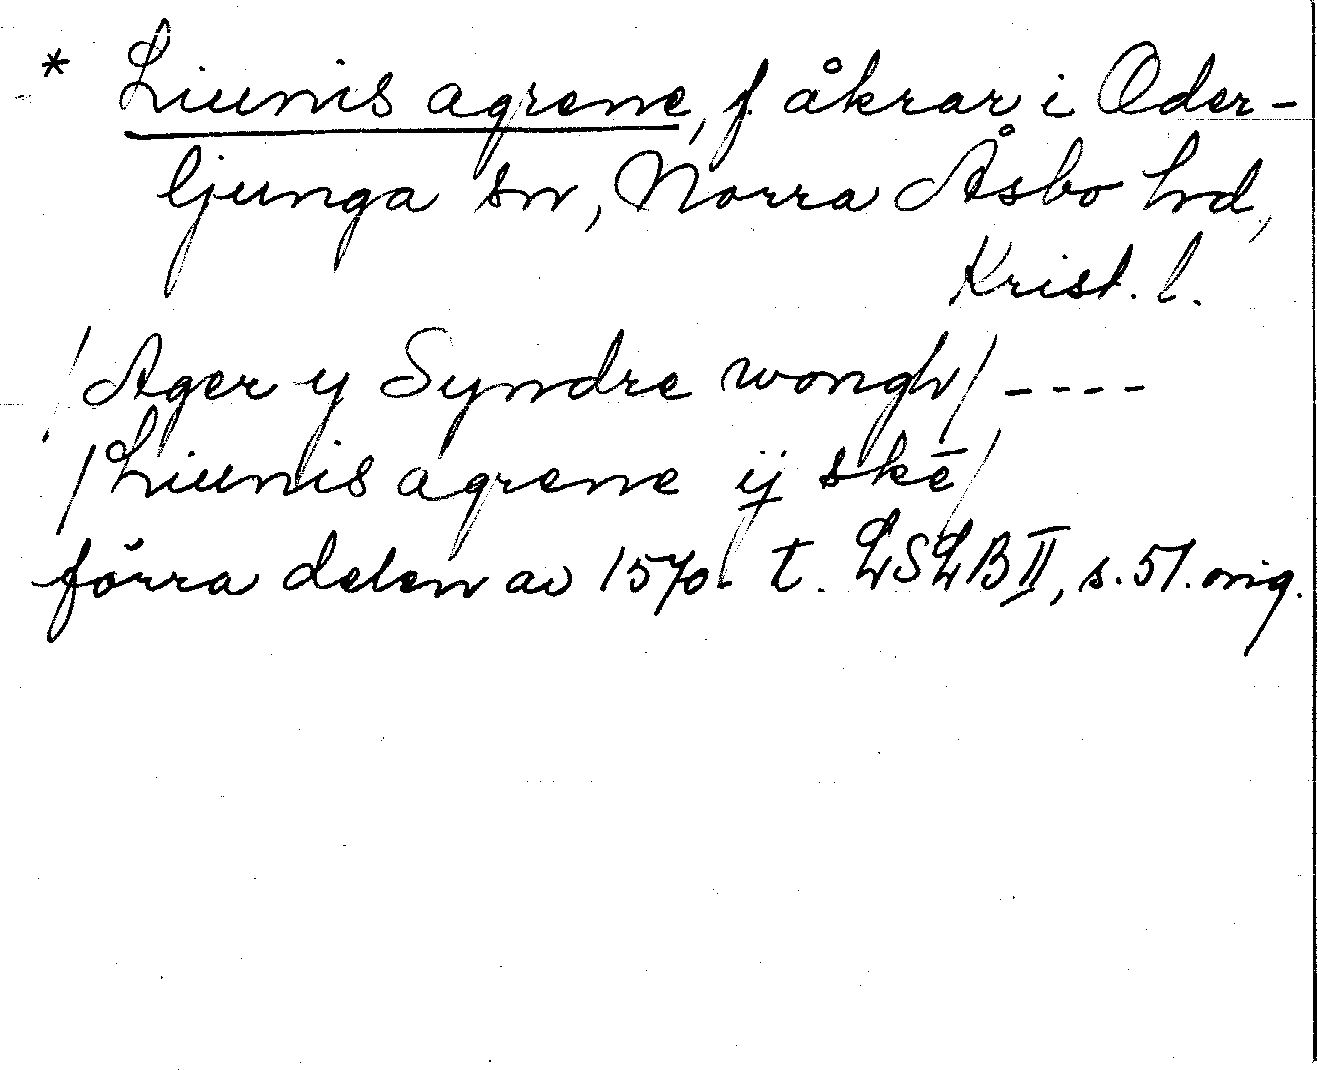 * Liunis agrene, f. åkrar i Oder-
ljunga sn, Norra Åsbo hd,
Krist. l.
/Ager y Syndre wongh/ ----
/Liunis agrene ij skē/
förra delen av 1570-t. LSLB II, s. 51. orig.